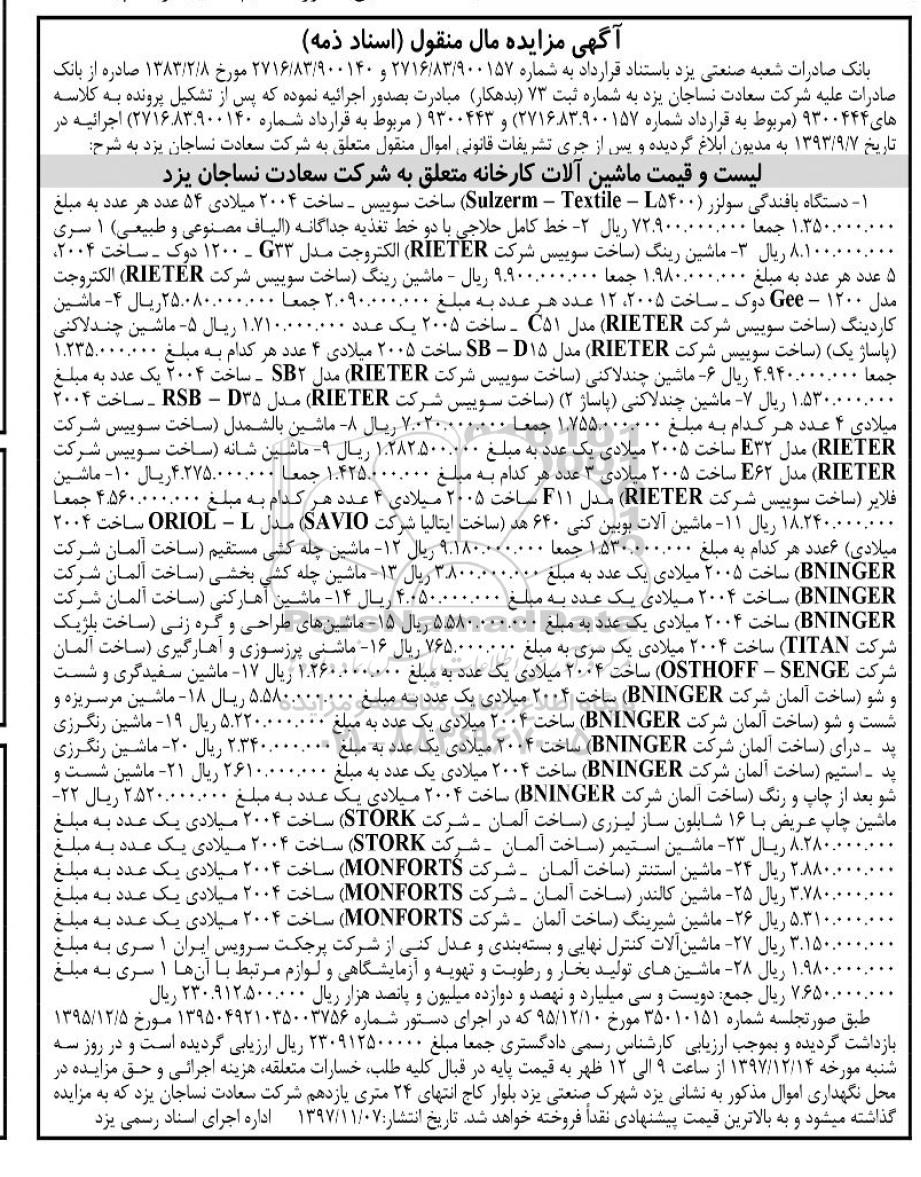 آگهی مزایده مال منقول (اسناد ذمه)
بانک صادرات شعبه صنعتی یزد باستناد قرارداد به شماره ۲۷۱۶/۸۳/۹۰۰۱۵۷ و ۲۷۱۶/۸۳/۹۰۰۱۴۰ مورخ ۱۳۸۳/۲/۸ صادره از بانک
صادرات علیه شرکت سعادت نساجان یزد به شماره ثبت ۷۳ (بدهکار) مبادرت بصدور اجرائیه نموده که پس از تشکیل پرونده به کلاسه
های۹۳۰۰۴۴۴ (مربوط به قرارداد شماره ۲۷۱۶.۸۳.۹۰۰۱۵۷) و ۹۳۰۰۴۴۳ ( مربوط به قرارداد شماره ۲۷۱۶.۸۳.۹۰۰۱۴۰) اجرائیه در
تاریخ ۱۳۹۳/۹/۷ به مدیون ابلاغ گردیده و پس از جری تشریفات قانونی اموال منقول متعلق به شرکت سعادت نساجان یزد به شرح:
لیست و قیمت ماشین آلات کارخانه متعلق به شرکت سعادت نساجان یزد
۱- دستگاه بافندگی سولزر (Sulzerm – Textile – L۵۴۰۰) ساخت سوییس ـ ساخت ۲۰۰۴ میلادی ۵۴ عدد هر عدد به مبلغ
۱.۳۵۰.۰۰۰.۰۰۰ جمعا ۷۲.۹۰۰.۰۰۰.۰۰۰ ریال ۲- خط کامل حلاجی با دو خط تغذیه جداگانه (الیاف مصنوعی و طبیعی) ۱ سری
۸.۱۰۰.۰۰۰.۰۰۰ ریال ۳- ماشین رینگ (ساخت سوییس شرکت RIETER) الکتروجت مدل G۳۳ ـ ۱۲۰۰ دوک ـ ساخت ۲۰۰۴،
۵ عدد هر عدد به مبلغ ۱.۹۸۰.۰۰۰.۰۰۰ جمعا ۹.۹۰۰.۰۰۰.۰۰۰ ریال - ماشین رینگ (ساخت سوییس شرکت RIETER) الکتروجت
مدل Gee – ۱۲۰۰ دوک ـ ساخت ۲۰۰۵، ۱۲ عدد هر عدد به مبلغ ۲.۰۹۰.۰۰۰.۰۰۰ جمعا ۲۵.۰۸۰.۰۰۰.۰۰۰ریال ۴- ماشین
کاردینگ (ساخت سوییس شرکت RIETER) مدل C۵۱ ـ ساخت ۲۰۰۵ یک عدد ۱.۷۱۰.۰۰۰.۰۰۰ ریال ۵- ماشین چندلاکنی
(پاساژ یک) (ساخت سوییس شرکت RIETER) مدل SB – D۱۵ ساخت ۲۰۰۵ میلادی ۴ عدد هر کدام به مبلغ ۱.۲۳۵.۰۰۰.۰۰۰
جمعا ۴.۹۴۰.۰۰۰.۰۰۰ ریال ۶- ماشین چندلاکنی (ساخت سوییس شرکت RIETER) مدل SB۲ ـ ساخت ۲۰۰۴ یک عدد به مبلغ
۱.۵۳۰.۰۰۰.۰۰۰ ریال ۷- ماشین چندلاکنی (پاساژ ۲) (ساخت سوییس شرکت RIETER) مدل RSB – D۳۵ ـ ساخت ۲۰۰۴
میلادی ۴ عدد هر کدام به مبلغ ۱.۷۵۵.۰۰۰.۰۰۰ جمعا ۷.۰۲۰.۰۰۰.۰۰۰ ریال ۸- ماشین بالشمدل (ساخت سوییس شرکت
RIETER) مدل E۳۲ ساخت ۲۰۰۵ میلادی یک عدد به مبلغ ۱.۲۸۲.۵۰۰.۰۰۰ ریال ۹- ماشین شانه (ساخت سوییس شرکت
RIETER) مدل E۶۲ ساخت ۲۰۰۵ میلادی ۳ عدد هر کدام به مبلغ ۱.۴۲۵.۰۰۰.۰۰۰ جمعا ۴.۲۷۵.۰۰۰.۰۰۰ریال ۱۰- ماشین
فلایر (ساخت سوییس شرکت RIETER) مدل F۱۱ ساخت ۲۰۰۵ میلادی ۴ عدد هر کدام به مبلغ ۴.۵۶۰.۰۰۰.۰۰۰ جمعا
۱۸.۲۴۰.۰۰۰.۰۰۰ ریال ۱۱- ماشین آلات بوبین کنی ۶۴۰ هد (ساخت ایتالیا شرکت SAVIO) مدل ORIOL – L ساخت ۲۰۰۴
میلادی) ۶عدد هر کدام به مبلغ ۱.۵۳۰.۰۰۰.۰۰۰ جمعا ۹.۱۸۰.۰۰۰.۰۰۰ ریال ۱۲- ماشین چله کشی مستقیم (ساخت آلمان شرکت
BNINGER) ساخت ۲۰۰۵ میلادی یک عدد به مبلغ ۳.۸۰۰.۰۰۰.۰۰۰ ریال ۱۳- ماشین چله کشی بخشی (ساخت آلمان شرکت
BNINGER) ساخت ۲۰۰۴ میلادی یک عدد به مبلغ ۴.۰۵۰.۰۰۰.۰۰۰ ریال ۱۴- ماشین آهارکنی (ساخت آلمان شرکت
BNINGER) ساخت ۲۰۰۴ میلادی یک عدد به مبلغ ۵.۵۸۰.۰۰۰.۰۰۰ ریال ۱۵- ماشین‌های طراحی و گره زنی (ساخت بلژیک
شرکت TITAN) ساخت ۲۰۰۴ میلادی یک سری به مبلغ ۷۶۵.۰۰۰.۰۰۰ ریال ۱۶- ماشنی پرزسوزی و آهارگیری (ساخت آلمان
شرکت OSTHOFF – SENGE) ساخت ۲۰۰۴ میلادی یک عدد به مبلغ ۱.۲۶۰.۰۰۰.۰۰۰ ریال ۱۷- ماشین سفیدگری و شست
و شو (ساخت آلمان شرکت BNINGER) ساخت ۲۰۰۴ میلادی یک عدد به مبلغ ۵.۵۸۰.۰۰۰.۰۰۰ ریال ۱۸- ماشین مرسریزه و
شست و شو (ساخت آلمان شرکت BNINGER) ساخت ۲۰۰۴ میلادی یک عدد به مبلغ ۵.۲۲۰.۰۰۰.۰۰۰ ریال ۱۹- ماشین رنگرزی
پد ـ درای (ساخت آلمان شرکت BNINGER) ساخت ۲۰۰۴ میلادی یک عدد به مبلغ ۲.۳۴۰.۰۰۰.۰۰۰ ریال ۲۰- ماشین رنگرزی
پد ـ استیم (ساخت آلمان شرکت BNINGER) ساخت ۲۰۰۴ میلادی یک عدد به مبلغ ۲.۶۱۰.۰۰۰.۰۰۰ ریال ۲۱- ماشین شست و
شو بعد از چاپ و رنگ (ساخت آلمان شرکت BNINGER) ساخت ۲۰۰۴ میلادی یک عدد به مبلغ ۲.۵۲۰.۰۰۰.۰۰۰ ریال ۲۲-
ماشین چاپ عریض با ۱۶ شابلون ساز لیزری (ساخت آلمان ـ شرکت STORK) ساخت ۲۰۰۴ میلادی یک عدد به مبلغ
۸.۲۸۰.۰۰۰.۰۰۰ ریال ۲۳- ماشین استیمر (ساخت آلمان ـ شرکت STORK) ساخت ۲۰۰۴ میلادی یک عدد به مبلغ
۲.۸۸۰.۰۰۰.۰۰۰ ریال ۲۴- ماشین استنتر (ساخت آلمان ـ شرکت MONFORTS) ساخت ۲۰۰۴ میلادی یک عدد به مبلغ
۳.۷۸۰.۰۰۰.۰۰۰ ریال ۲۵- ماشین کالندر (ساخت آلمان ـ شرکت MONFORTS) ساخت ۲۰۰۴ میلادی یک عدد به مبلغ
۵.۳۱۰.۰۰۰.۰۰۰ ریال ۲۶- ماشین شیرینگ (ساخت آلمان ـ شرکت MONFORTS) ساخت ۲۰۰۴ میلادی یک عدد به مبلغ
۳.۱۵۰.۰۰۰.۰۰۰ ریال ۲۷- ماشین‌آلات کنترل نهایی و بسته‌بندی و عدل کنی از شرکت پرجکت سرویس ایران ۱ سری به مبلغ
۱.۹۸۰.۰۰۰.۰۰۰ ریال ۲۸- ماشین های تولید بخار و رطوبت و تهویه و آزمایشگاهی و لوازم مرتبط با آن‌ها ۱ سری به مبلغ
۷.۶۵۰.۰۰۰.۰۰۰ ریال جمع: دویست و سی میلیارد و نهصد و دوازده میلیون و پانصد هزار ریال ۲۳۰.۹۱۲.۵۰۰.۰۰۰ ریال
طبق صورتجلسه شماره ۳۵۰۱۰۱۵۱ مورخ ۹۵/۱۲/۱۰ که در اجرای دستور شماره ۱۳۹۵۰۴۹۲۱۰۳۵۰۰۳۷۵۶ مورخ ۱۳۹۵/۱۲/۵
بازداشت گردیده و بموجب ارزیابی کارشناس رسمی دادگستری جمعا مبلغ ۲۳۰۹۱۲۵۰۰۰۰۰ ریال ارزیابی گردیده است و در روز سه
شنبه مورخه ۱۳۹۷/۱۲/۱۴ از ساعت ۹ الی ۱۲ ظهر به قیمت پایه در قبال کلیه طلب، خسارات متعلقه، هزینه اجرائی و حق مزایده در
محل نگهداری اموال مذکور به نشانی یزد شهرک صنعتی یزد بلوار کاج انتهای ۲۴ متری یازدهم شرکت سعادت نساجان یزد که به مزایده
گذاشته میشود و به بالاترین قیمت پیشنهادی نقداً فروخته خواهد شد. تاریخ انتشار:۱۳۹۷/۱۱/۰۷ اداره اجرای اسناد رسمی یزد